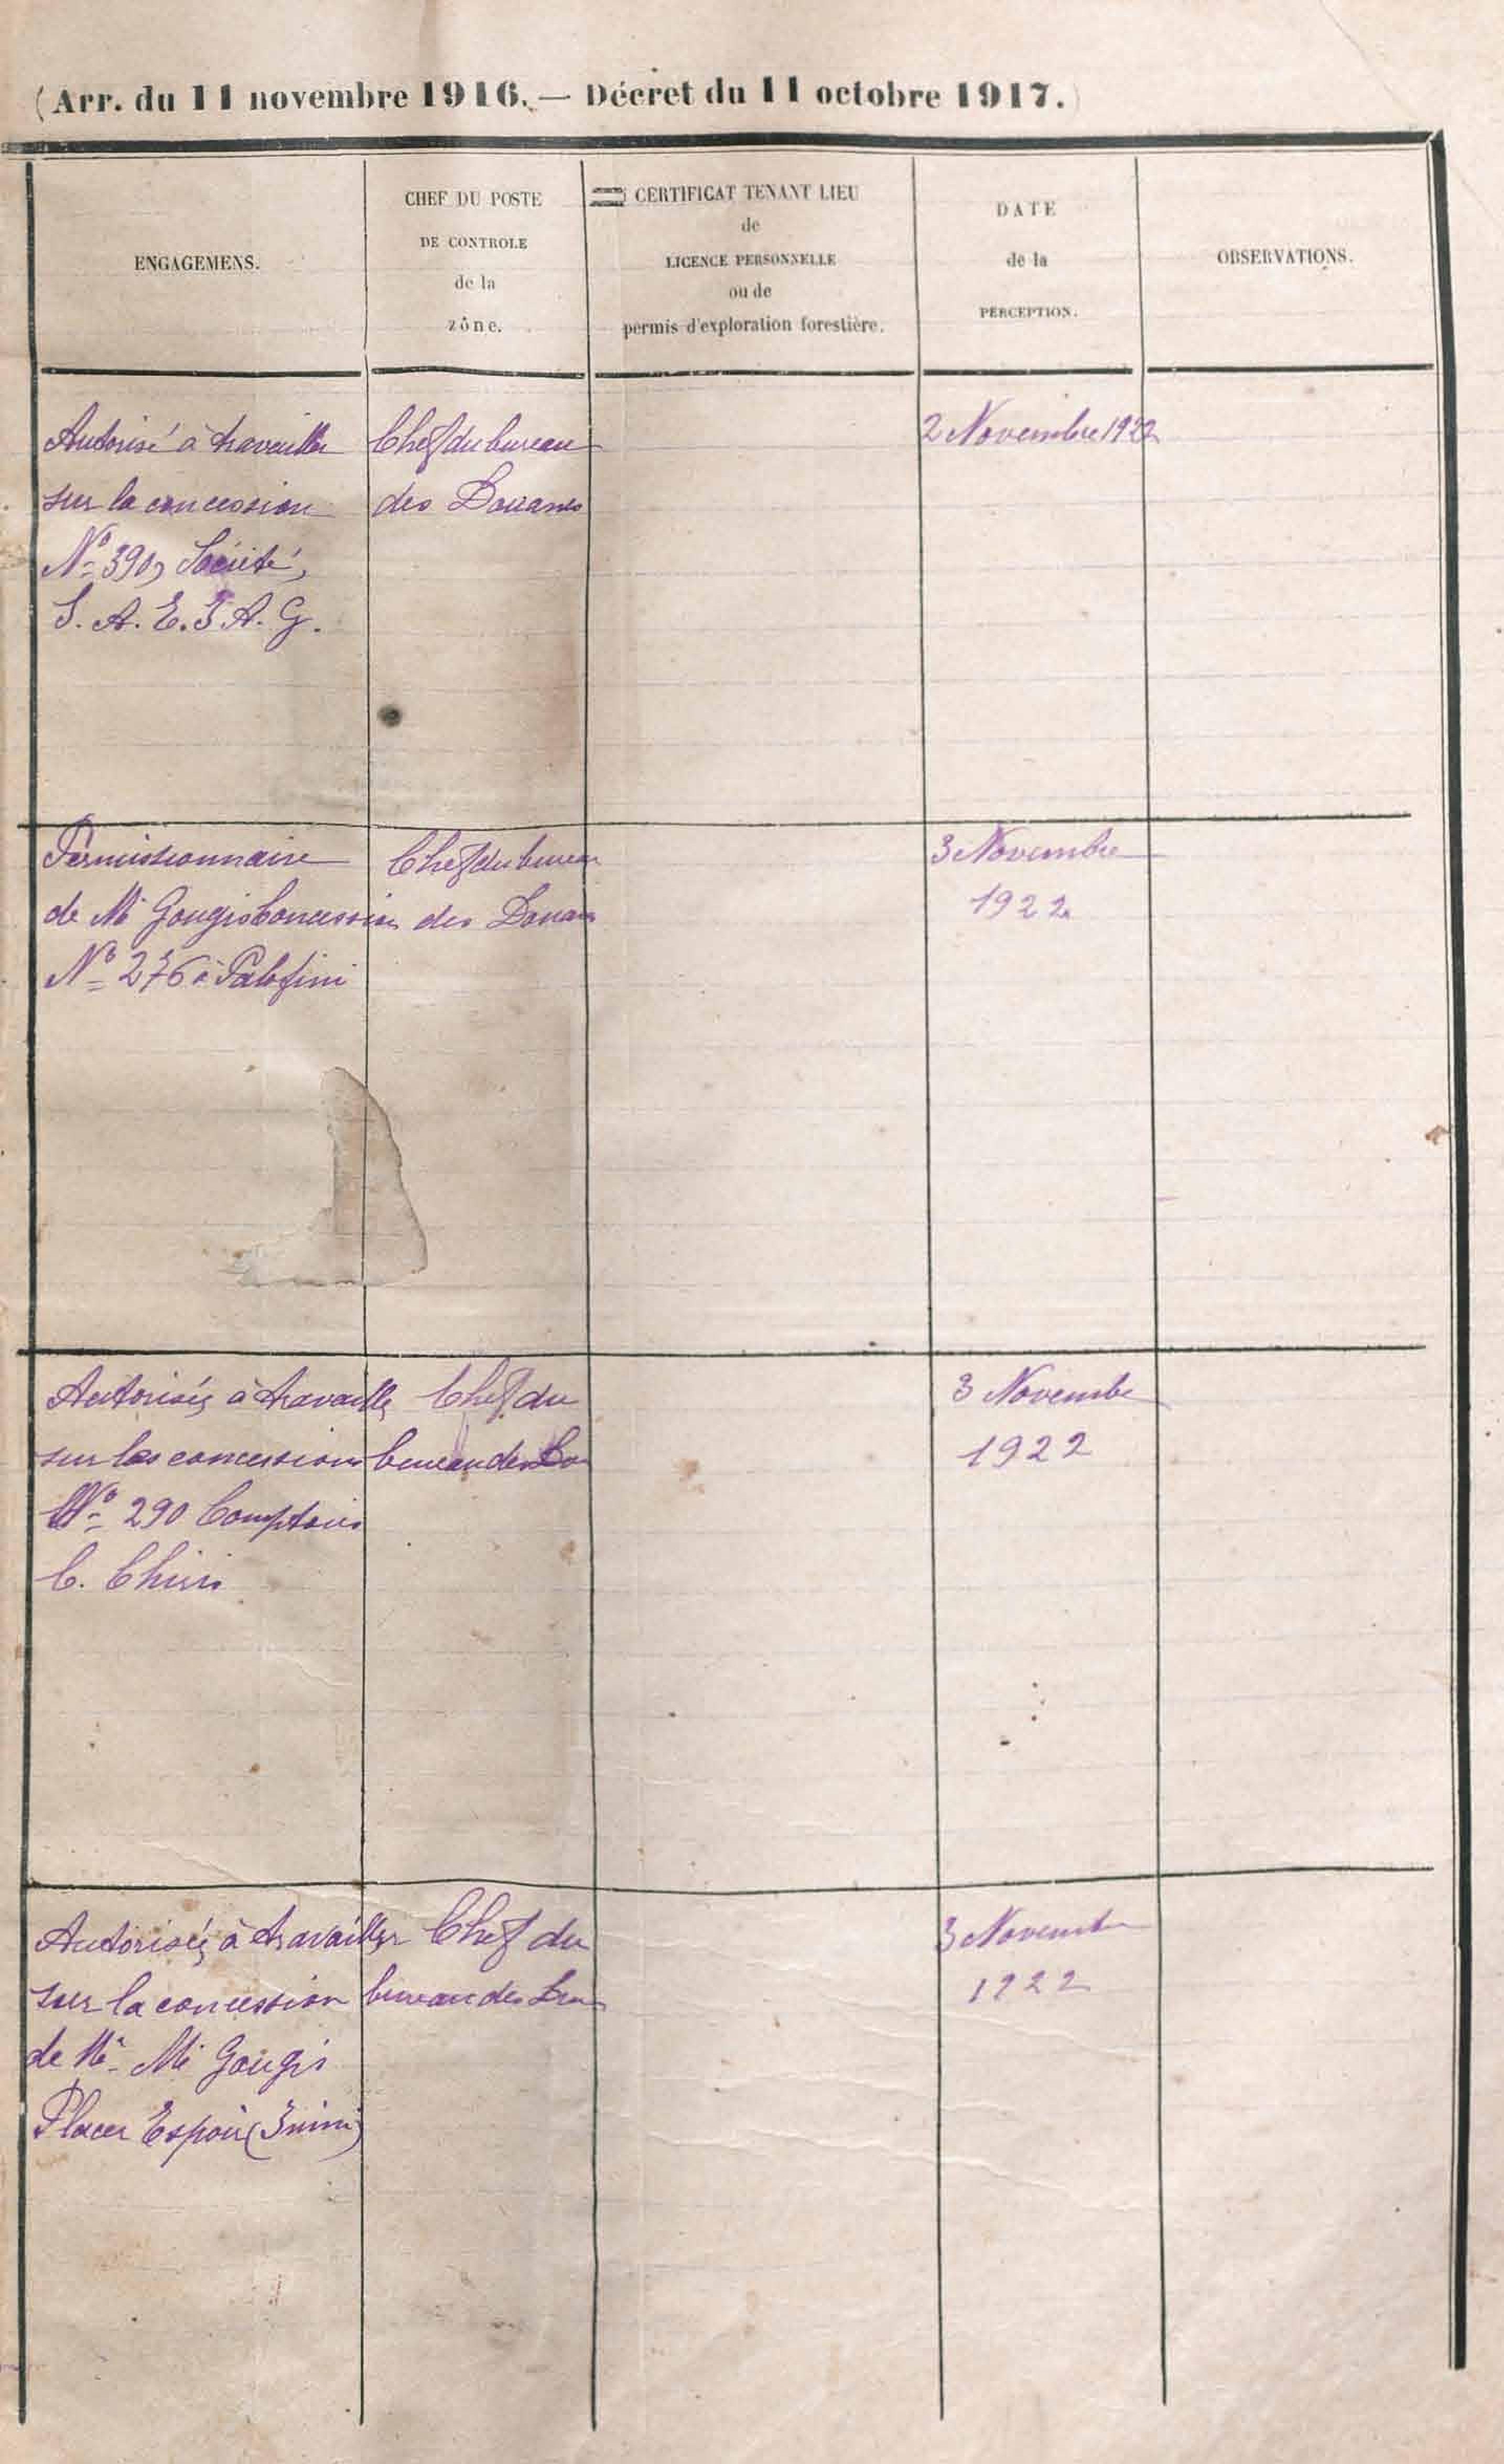 (Arr. du 11 novembre 1916. — Décret du 11 octobre 1917.)
ENGAGEMENS.
CHEF DU POSTE
DE CONTROLE
de la
zône.
CERTIFICAT TENANT LIEU
de
LICENCE PERSONNELLE
ou de
permis d'exploration forestière.
DATE
de la
PERCEPTION.
OBSERVATIONS.
Autorisé à travailler
sur la concession
Nº 390, Société,
S. A. E. F. A. G.
Chef du bureau
des Douanes
2 Novembre 1922
Permissionnaire
de Mr Gougis Concession
Nº 276 à
Chef du bureau
des Douanes
3 Novembre
1922
Autorisés à travailler
sur les concessions
Nº 290 Comptoirs
C. Chiris
Chef du
bureau des Dou
3 Novembre
1922
Autorisés à travailler
sur la concession
de Mr. Mi Gougis
Placer Espoir (Inini)
Chef du
bureau des
3 Novemb
1922